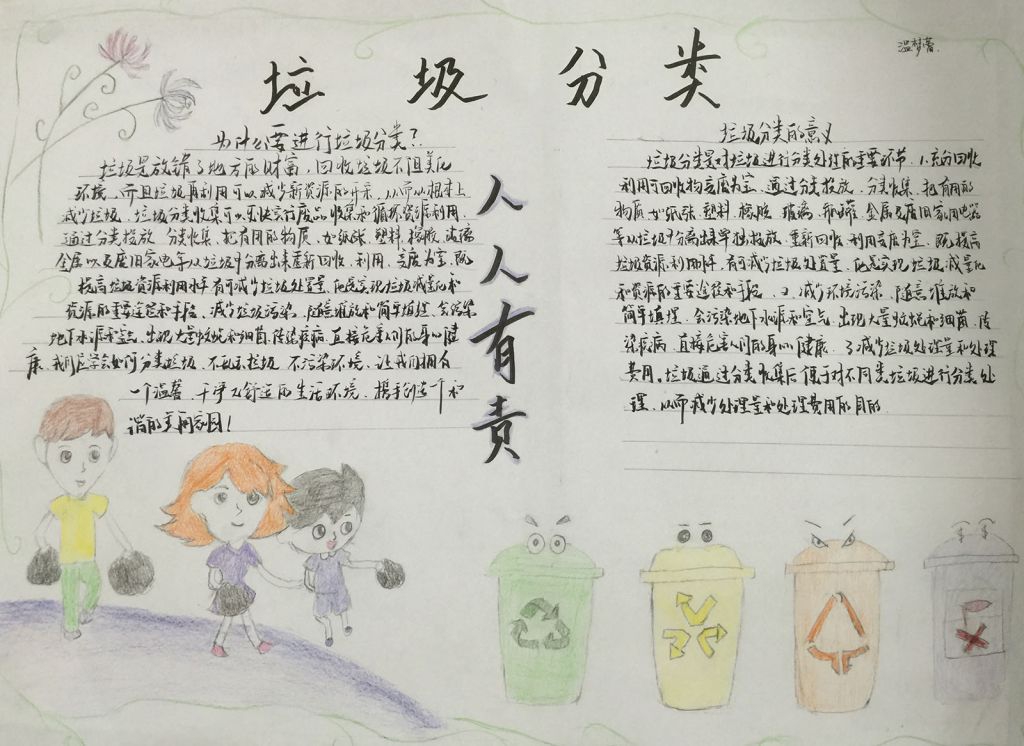 垃圾分类
温梦蕾.
人人有责
为什么要进行垃圾分类?
垃圾是放错了地方的财富，回收垃圾不但美化
环境，而且垃圾再利用可以减少新资源的开采，从而从根本上
减少垃圾，垃圾分类收集可以尽快实行废品收集和循环资源利用，
通过分类投放，分类收集，把有用的物质，如纸张，塑料，橡胶，玻璃
金属以及废旧家电等从垃圾中分离出来重新回收、利用、变废为宝，既
提高垃圾资源利用水平，有可减少垃圾处置量，他是实现垃圾减量化和
资源的重要途径和手段，减少垃圾污染，随意堆放和简单填埋，会污染
地下水源和空气，出现大量蚊蝇和细菌，传染疾病，直接危害人们的身心健
康，我们应学会如何分类垃圾，不乱丢垃圾，不污染环境，让我们拥有
一个温馨，干净又舒适的生活环境，携手创造一个和
谐的美丽家园!
垃圾分类的意义
垃圾分类是对垃圾进行分类处理的重要环节，1.充份回收
利用可回收物变废为宝，通过分类投放，分类收集，把有用的
物质，如纸张，塑料，橡胶，玻璃，瓶罐，金属及废旧家用电器
等从垃圾中分离出来单独投放，重新回收，利用变废为宝，既提高
垃圾资源利用水平，有可减少垃圾处置量，他是实现垃圾减量化
和资源的重要途径和手段，2、减少环境污染，随意堆放和
简单填埋，会污染地下水源和空气，出现大量蚊蝇和细菌，传
染疾病，直接危害人们的身心健康，3减少垃圾处理量和处理
费用，垃圾通过分类收集后便于对不同类垃圾进行分类处
理，从而减少处理量和处理费用的目的.